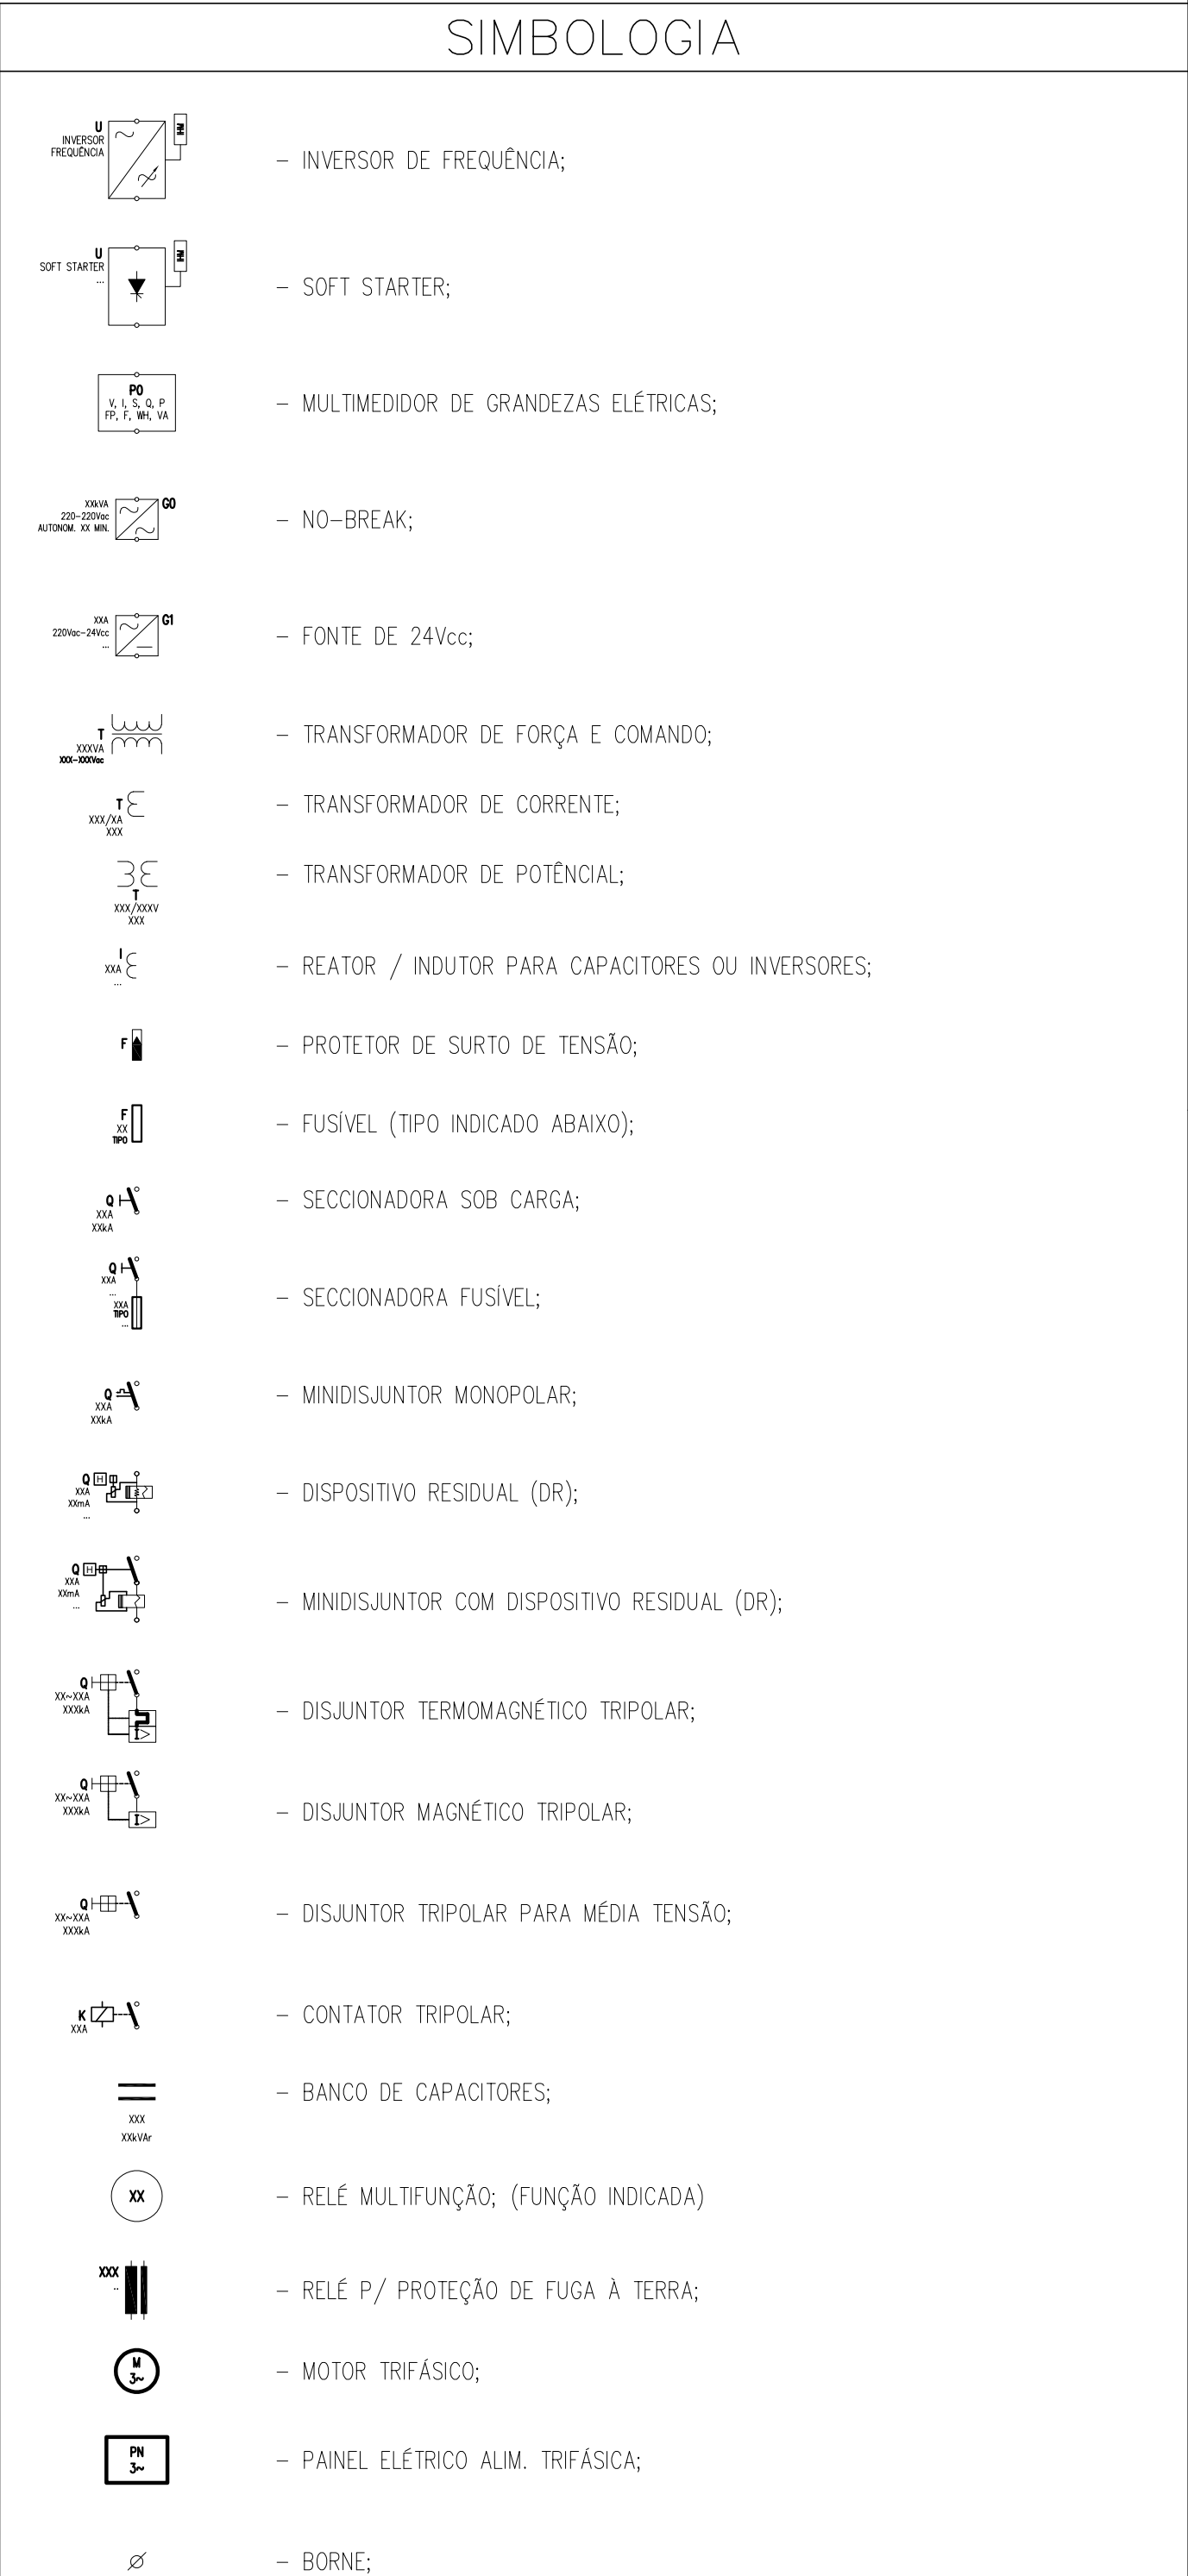 SIMBOLOGIA
U
INVERSOR
FREQUÊNCIA
IHM
- INVERSOR DE FREQUÊNCIA;
U
SOFT STARTER
...
IHM
- SOFT STARTER;
P0
V, I, S, Q, P
FP, F, WH, VA
- MULTIMEDIDOR DE GRANDEZAS ELÉTRICAS;
XXkVA
220-220Vac
AUTONOM. XX MIN.
G0
- NO-BREAK;
XXA
220Vac-24Vcc
...
G1
- FONTE DE 24Vcc;
T
XXXVA
XXX-XXXVac
- TRANSFORMADOR DE FORÇA E COMANDO;
T
XXX/XA
XXX
- TRANSFORMADOR DE CORRENTE;
T
XXX/XXXV
XXX
- TRANSFORMADOR DE POTÊNCIAL;
I
XXA
...
- REATOR / INDUTOR PARA CAPACITORES OU INVERSORES;
F
- PROTETOR DE SURTO DE TENSÃO;
F
XX
TIPO
- FUSÍVEL (TIPO INDICADO ABAIXO);
Q
XXA
XXkA
- SECCIONADORA SOB CARGA;
Q
XXA
...
XXA
TIPO
...
- SECCIONADORA FUSÍVEL;
Q
XXA
XXkA
- MINIDISJUNTOR MONOPOLAR;
Q H
XXA
XXmA
...
- DISPOSITIVO RESIDUAL (DR);
Q H
XXA
XXmA
...
- MINIDISJUNTOR COM DISPOSITIVO RESIDUAL (DR);
Q
XX~XXA
XXXkA
I>
- DISJUNTOR TERMOMAGNÉTICO TRIPOLAR;
Q
XX~XXA
XXXkA
I>
- DISJUNTOR MAGNÉTICO TRIPOLAR;
Q
XX~XXA
XXXkA
- DISJUNTOR TRIPOLAR PARA MÉDIA TENSÃO;
K
XXA
- CONTATOR TRIPOLAR;
XXX
XXkVAr
- BANCO DE CAPACITORES;
XX
- RELÉ MULTIFUNÇÃO; (FUNÇÃO INDICADA)
XXX
..
- RELÉ P/ PROTEÇÃO DE FUGA À TERRA;
M
3~
- MOTOR TRIFÁSICO;
PN
3~
- PAINEL ELÉTRICO ALIM. TRIFÁSICA;
- BORNE;